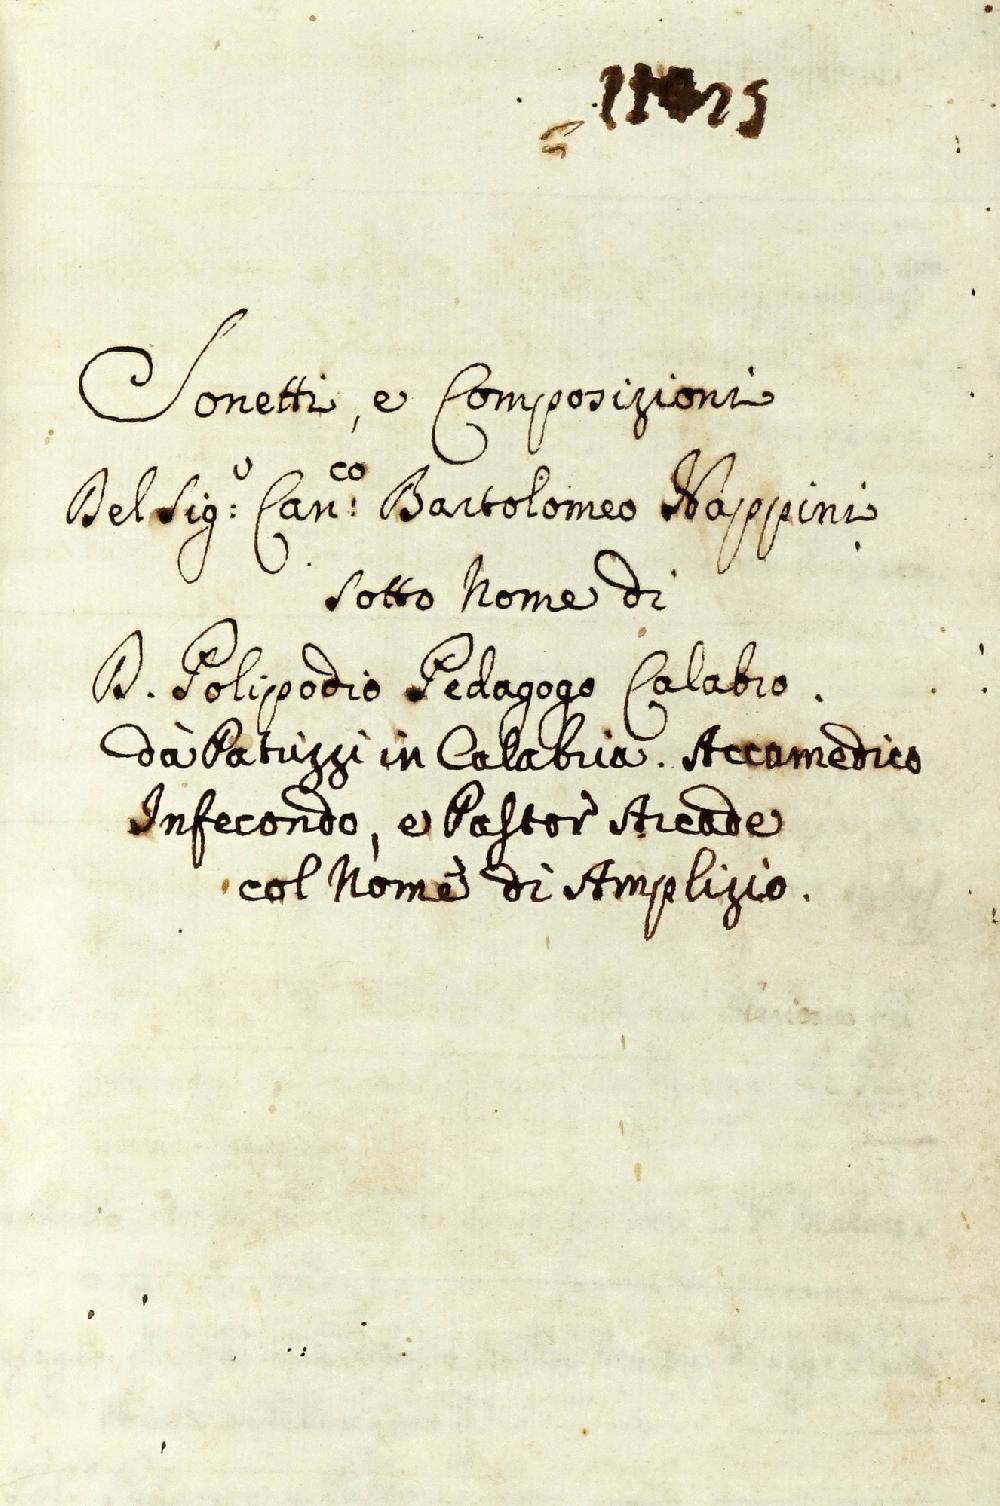 Sonetti, e Composizioni
Del Sig:e Can:co Bartolomeo Nappini
sotto Nome di
D. Polipodio Pedagogo Calabro.
dà Patuzzi in Calabria. Accamedico
Infecondo, e Pastor Arcade
col Nome di Amplizio.